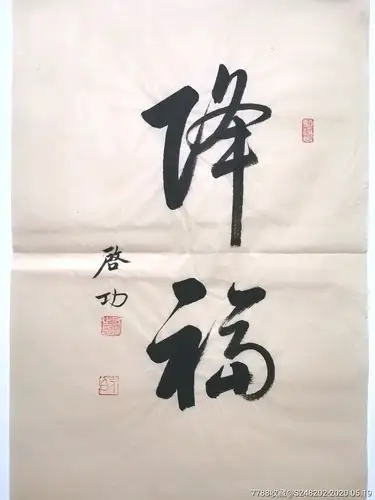 降福
啓功
7788收藏@S248202 2020.05.19